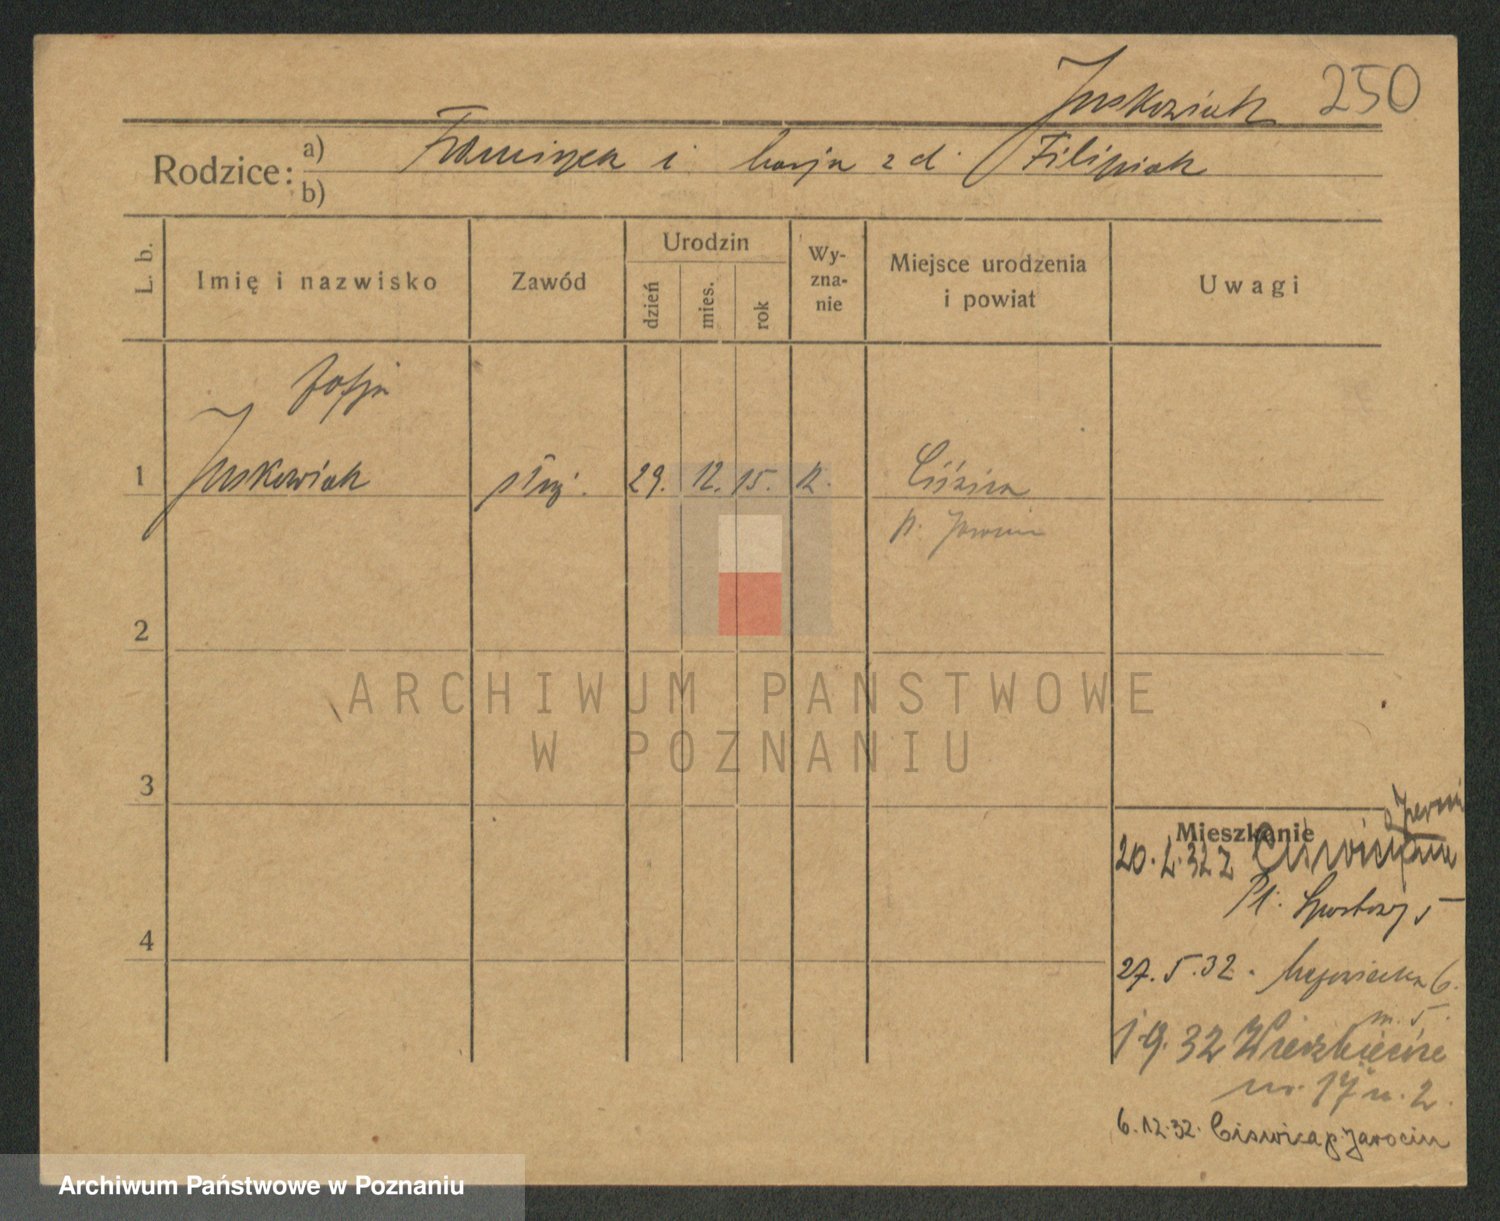 Juskowiak 250
Rodzice: a) Franciszek i Marja z d. Filipiak
b)
L. b. Imię i nazwisko Zawód Urodzin dzień mies. rok Wy-zna-nie Miejsce urodzenia i powiat Uwagi
Zofja
1 Juskowiak służ. 29. 12. 15. K.
p. Jarocin
2
ARCHIWUM PAŃSTWOWE
W POZNANIU
3
Mieszkanie
20. 32 z
Pl. Sportowy 5
27. 5. 32. 6.
m. 5.
1.9.32 Wierzbięcice
nr. 17 m. 2.
6.12.32. Ciświca p. Jarocin
4
Archiwum Państwowe w Poznaniu